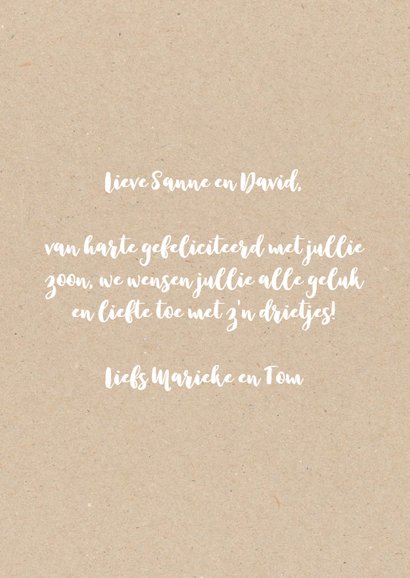 Lieve Sanne en David,
van harte gefeliciteerd met jullie
zoon, we wensen jullie alle geluk
en liefte toe met z'n drietjes!
Liefs Marieke en Tom